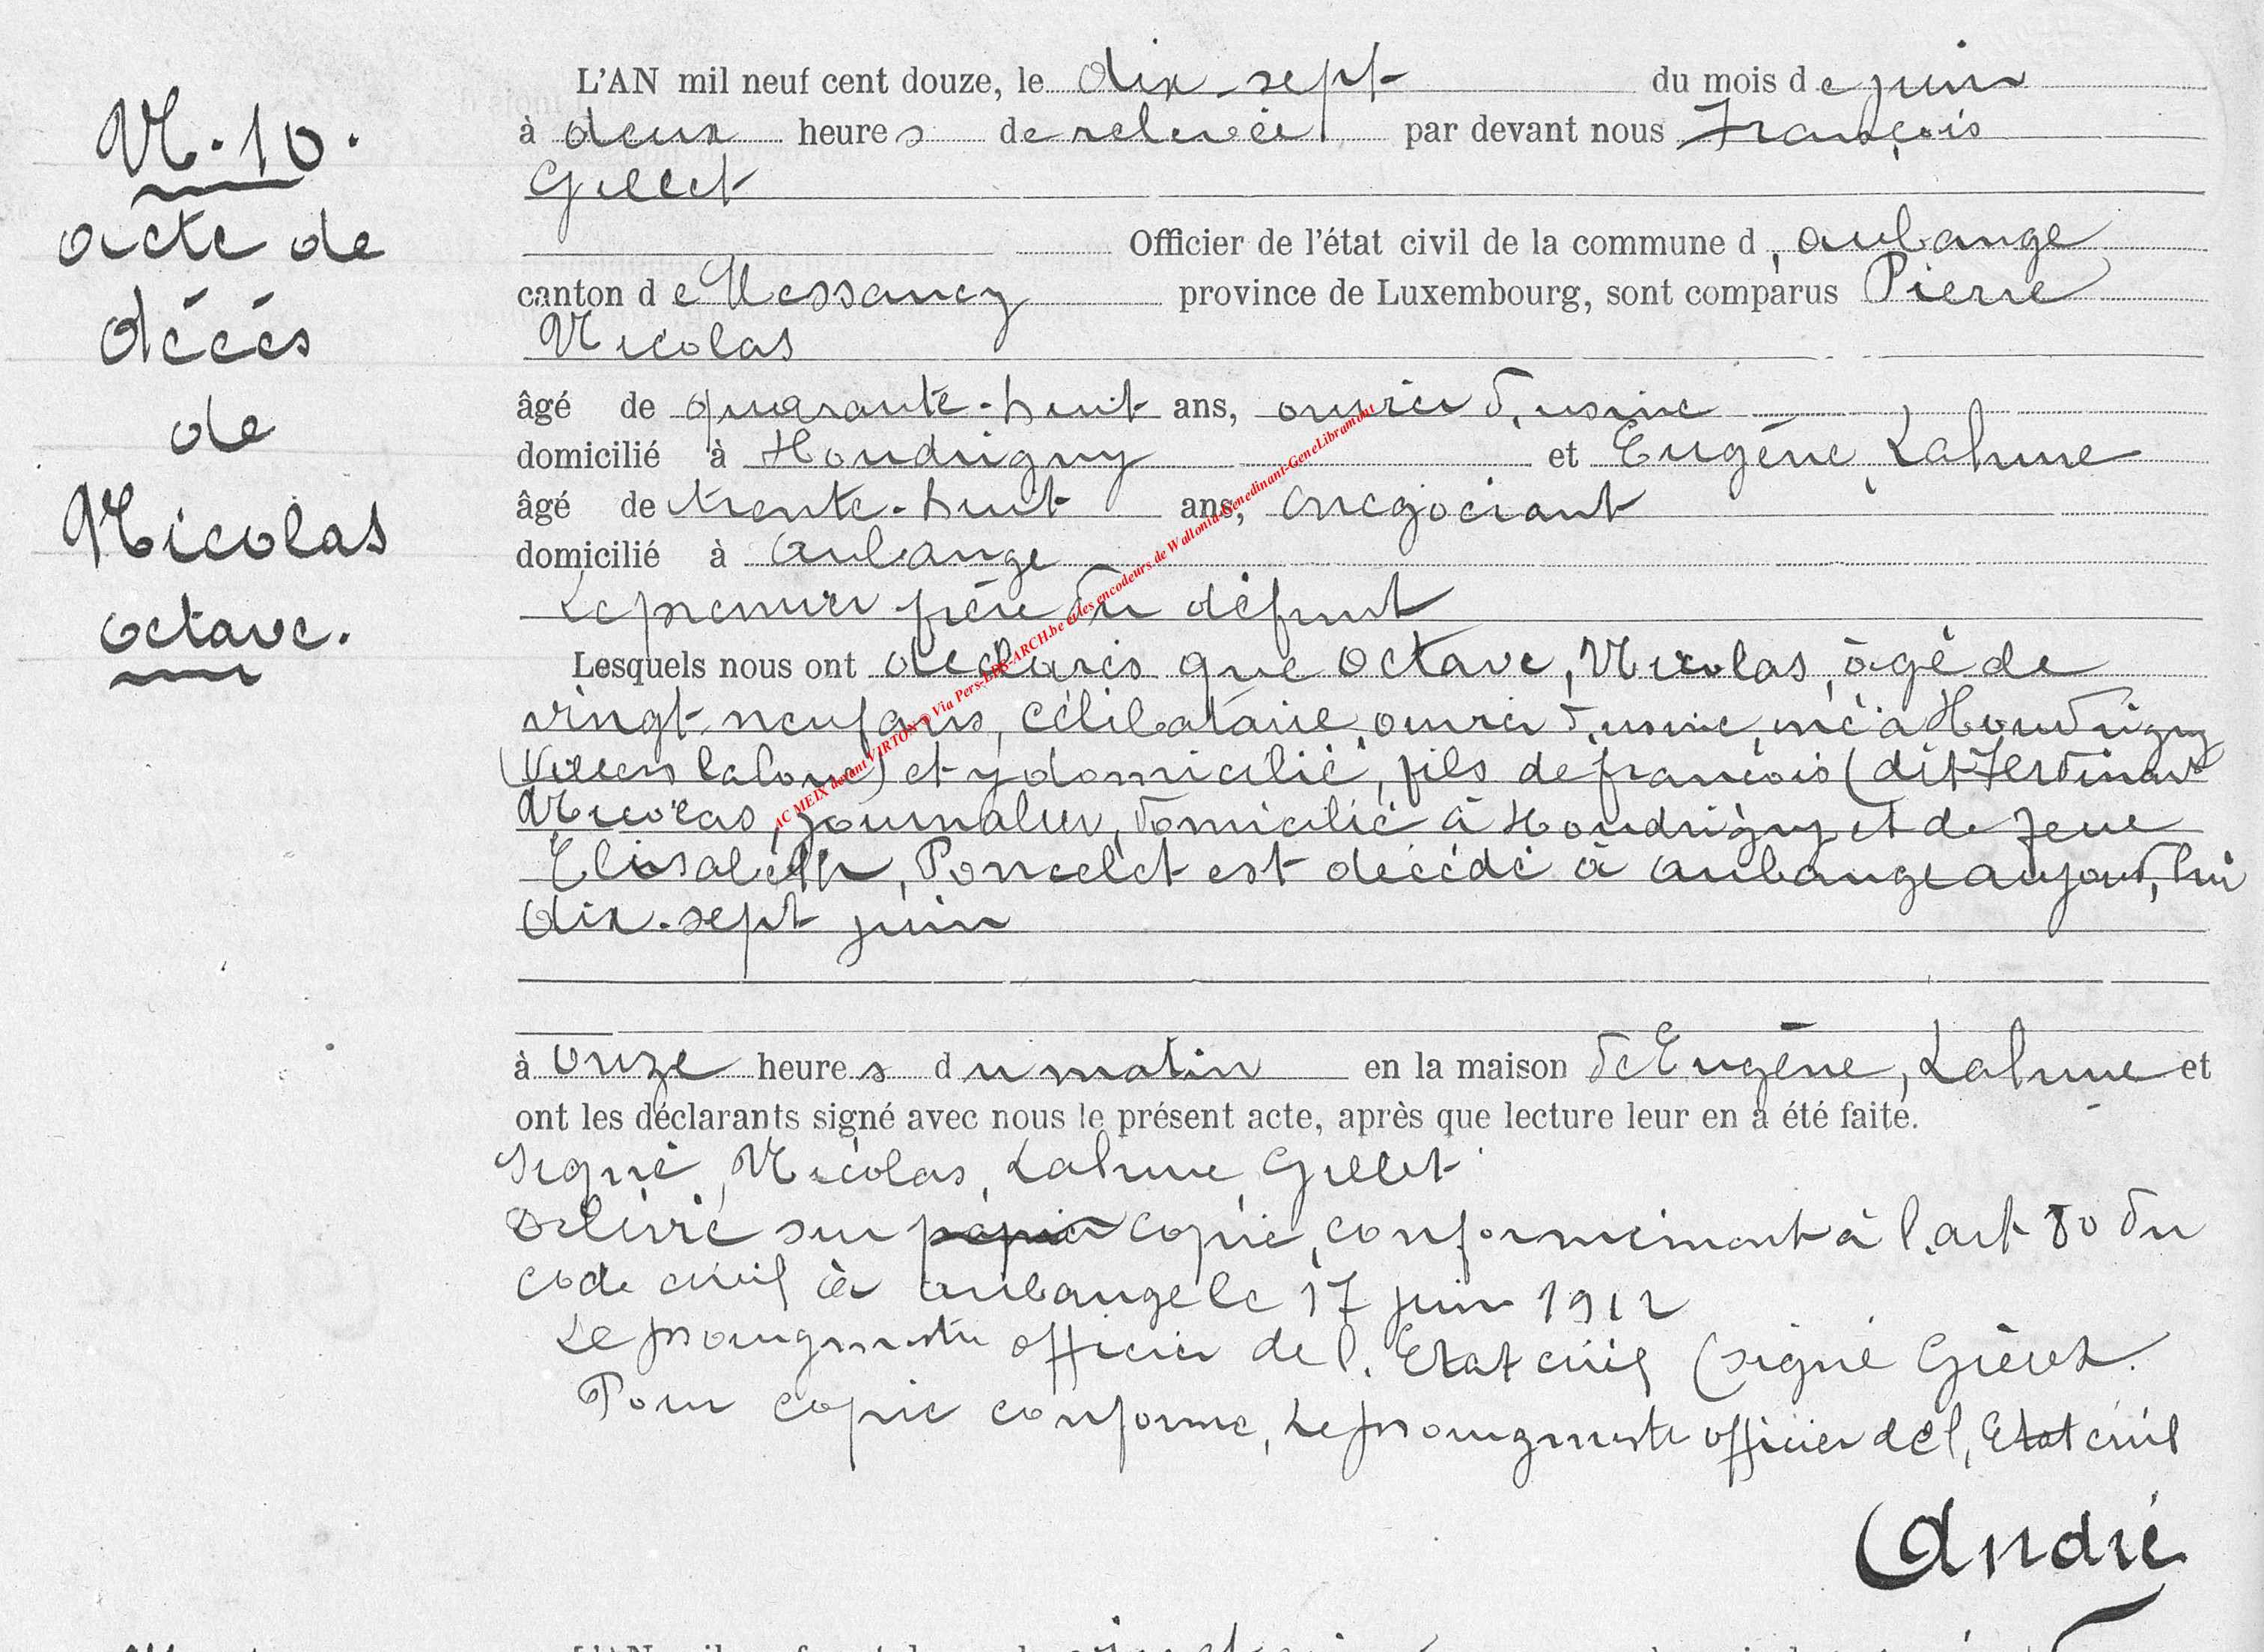 N. 10.
acte de
décès
de
Nicolas
octave.
L'AN mil neuf cent douze, le dix-sept du mois de juin
à deux heures de relevée par devant nous François
Gillet
Officier de l'état civil de la commune d, aubange
canton de Messancy province de Luxembourg, sont comparus Pierre
Nicolas
âgé de quarante-huit ans, ouvrier d,usine
domicilié à Houdrigny et Eugène, Lahure
âgé de trente-huit ans, négociant
domicilié à aubange
Le premier frère du défunt
Lesquels nous ont déclarés que Octave, Nicolas, âgé de
vingt-neuf ans, célibataire, ouvrier d,usine, né à Houdrigny
(Villers la loue) et y domicilié, fils de françois (dit Ferdinand
Nicolas, journalier, domicilié à Houdrigny et de feue
Elisabeth, Poncelet est décédé à aubange aujourd,hui
dix-sept juin
à onze heures du matin en la maison de Eugène, Lahure et
ont les déclarants signé avec nous le présent acte, après que lecture leur en a été faite.
Signé, Nicolas, Lahure, Gillet
Délivré sur papier copie, conformément à l,art 80 du
code civil à aubange le 17 juin 1912
Le bourgmestre officier de l, Etat civil (signé
Pour copie conforme, Le bourgmestre officier de l, Etat civil
André
AC MEIX devant VIRTON @ Via Pers-EPS-ARCH.be et les encodeurs de Wallonia-Genedinant-GeneLibramont